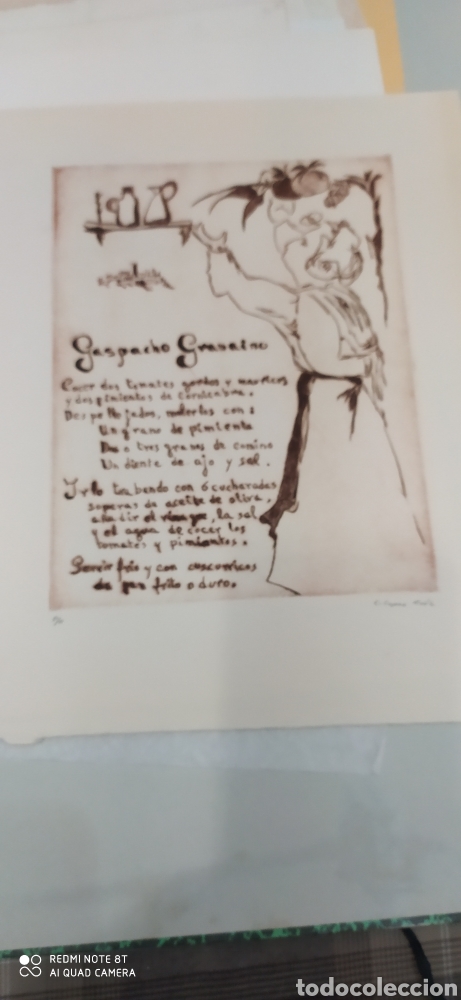 Gaspacho Granaino
Cocer dos tomates gordos y maduros
y dos pimientos de cornicabra.
Despellejados, molerlos con:
Un grano de pimienta
Dos o tres granos de comino
Un diente de ajo y sal.
Irlo trabando con 6 cucharadas
soperas de aceite de oliva,
añadir el vinagre, la sal
y el agua de cocer los
tomates y pimientos.
Servir frio y con cuscurricos
de pan frito o duro.
REDMI NOTE 8T
AI QUAD CAMERA
todocoleccion